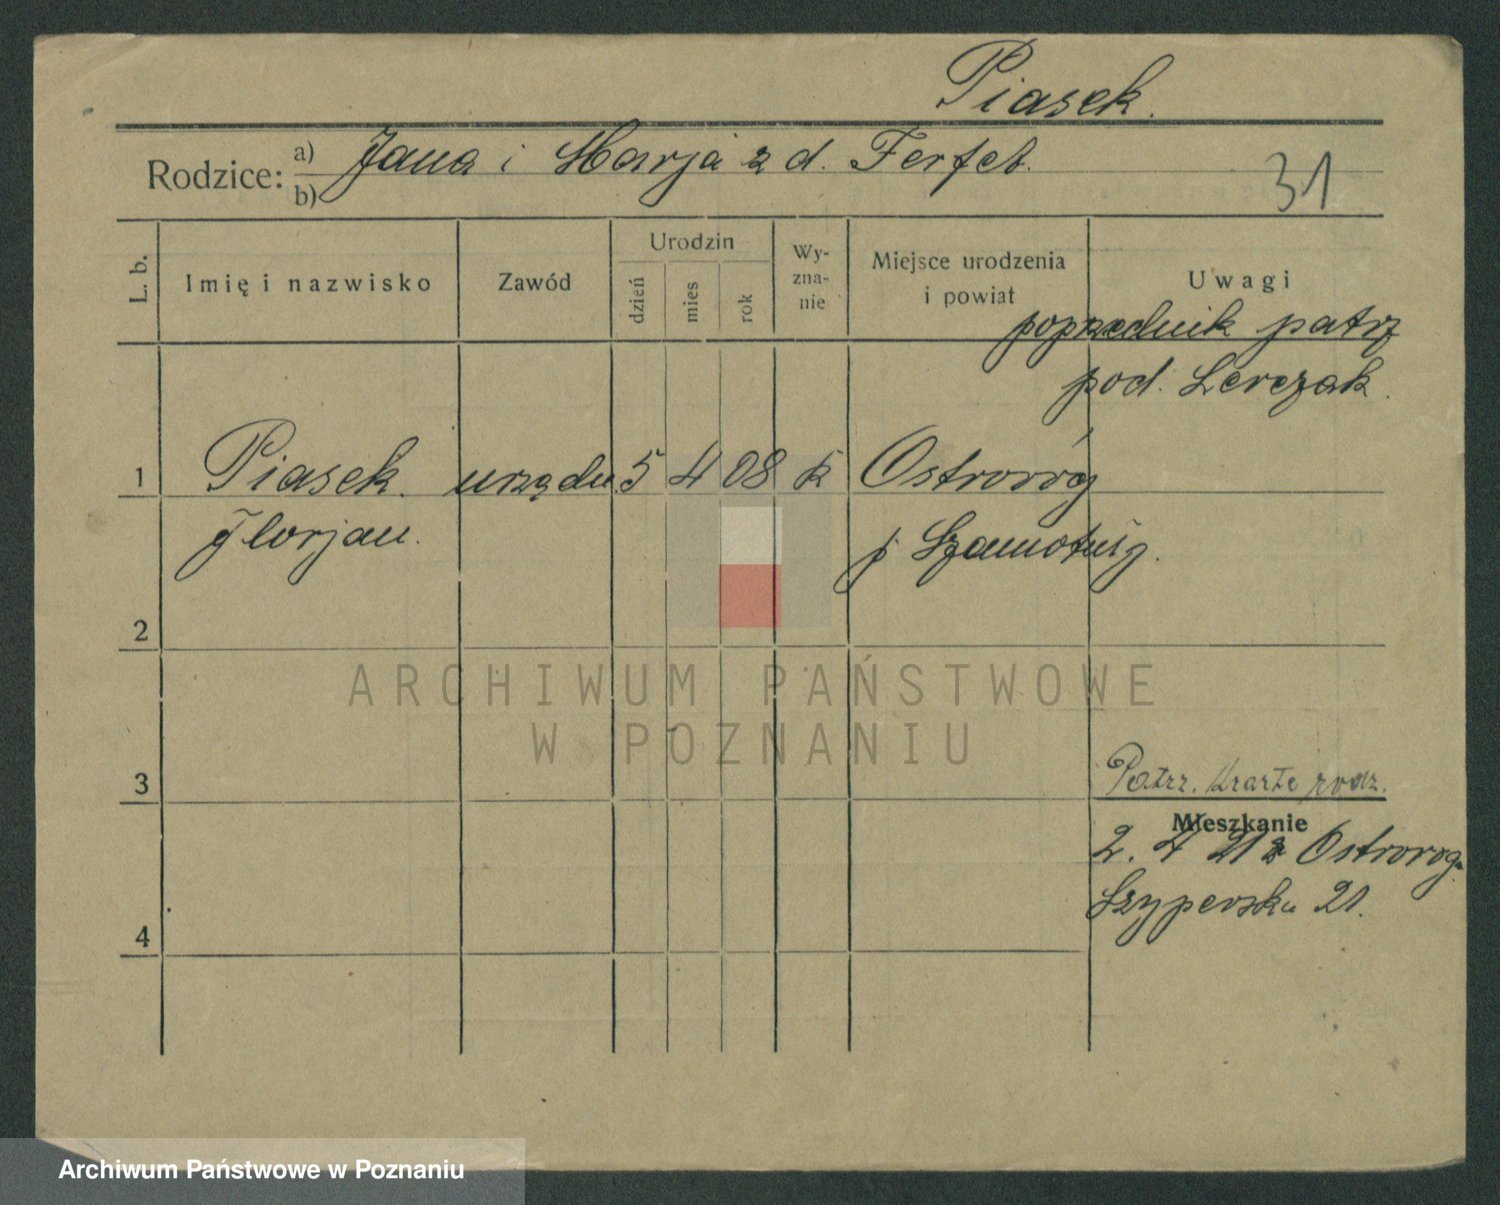 Piasek.
Rodzice: a) Jana i Marja z d. Ferfet.
b)
31
L. b.
Imię i nazwisko
Zawód
Urodzin
dzień
mies
rok
Wy-
zna-
nie
Miejsce urodzenia
i powiat
Uwagi
poprzednik patrz
pod. Lerczak.
1 Piasek. urzędn. 5 4 08 k Ostroróg
Florjan. p Szamotuły.
2
3
Patrz. kartę rodz.
Mieszkanie
2. 4 21 z Ostroroga
Szyperska 21.
4
ARCHIWUM PAŃSTWOWE
W POZNANIU
Archiwum Państwowe w Poznaniu